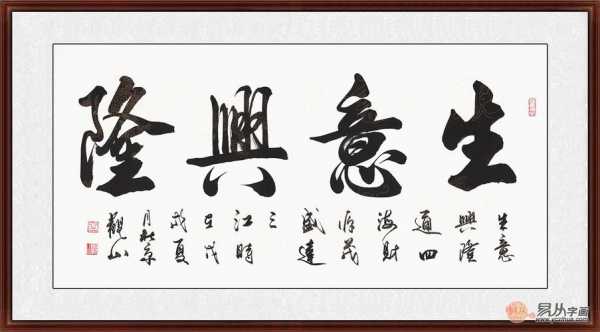 生意興隆
生意
興隆
通四
海財
源茂
盛達
三
江時
在戊
戌夏
月於京
觀山
易从字画
www.yczihua.com